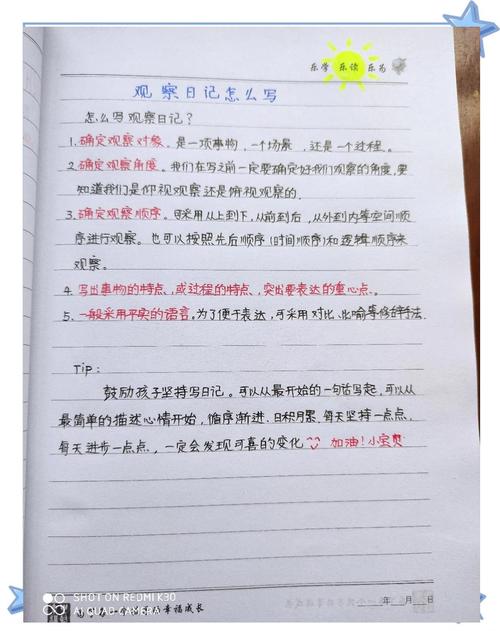 乐学 乐读 乐为
观察日记怎么写
怎么写观察日记?
1.确定观察对象。是一项事物,一个场景,还是一个过程。
2.确定观察角度。我们在写之前一定要确定好我们观察的角度,要
知道我们是仰视观察还是俯视观察的.
3.确定观察顺序。可采用从上到下,从前到后,从外到内等空间顺
序进行观察。也可以按照先后顺序(时间顺序)和逻辑顺序来
观察。
4.写出事物的特点、或过程的特点、突出要表达的重心点。
5.一般采用平实的语言,为了便于表达,可采用对比、比喻等修辞手法.
Tip:
鼓励孩子坚持写日记。可以从最开始的一句话写起,可以从
最简单的描述心情开始,循序渐进、日积月累,每天坚持一点点、
每天进步一点点,一定会发现可喜的变化 加油!小宝贝
年 月 日
SHOT ON REDMI K30
AI QUAD CAMERA
幸福成长